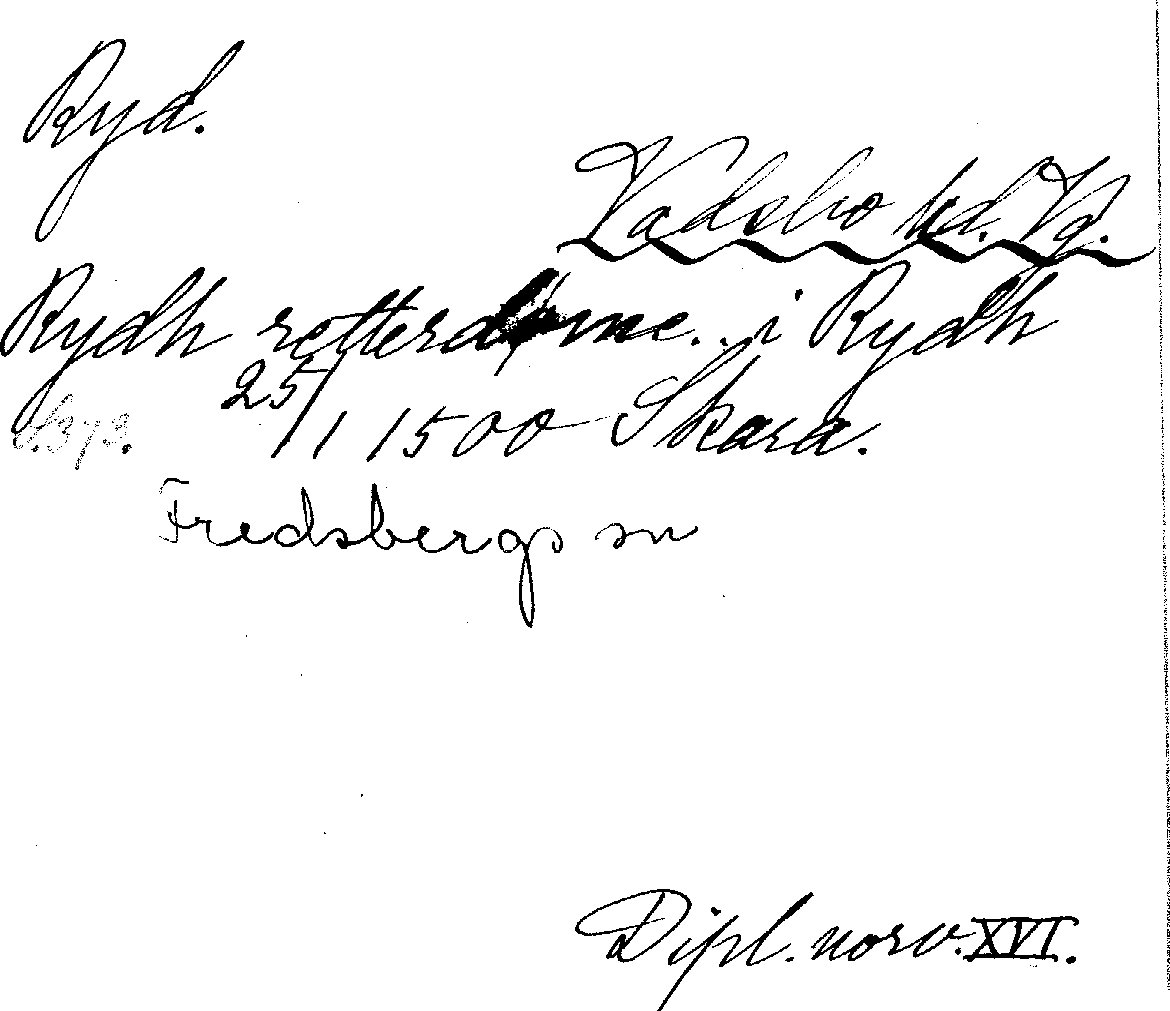 Ryd.
Vadsbo hd. Vg.
Rydh retterdøme... i Rydh
S. 373. 25/1 1500 Skara.
Fredsbergs sn
Dipl. norv. XVI.